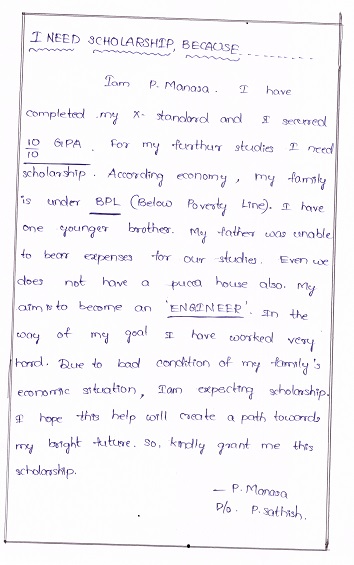 I NEED SCHOLARSHIP, BECAUSE...........
Iam P. Manasa. I have
completed my X- standard and I secured
10/10 GPA. For my furthur studies I need
scholarship. According economy, my family
is under BPL (Below Poverty Line). I have
one younger brother. My father was unable
to bear expenses for our studies. Even we
does not have a pucca house also. My
aim is to become an 'ENGINEER'. In the
way of my goal I have worked very
hard. Due to bad condition of my family's
economic situation, Iam expecting scholarship.
I hope this help will create a path towards
my bright future. So, kindly grant me this
scholarship.
— P. Manasa
D/o. P. Sathish.